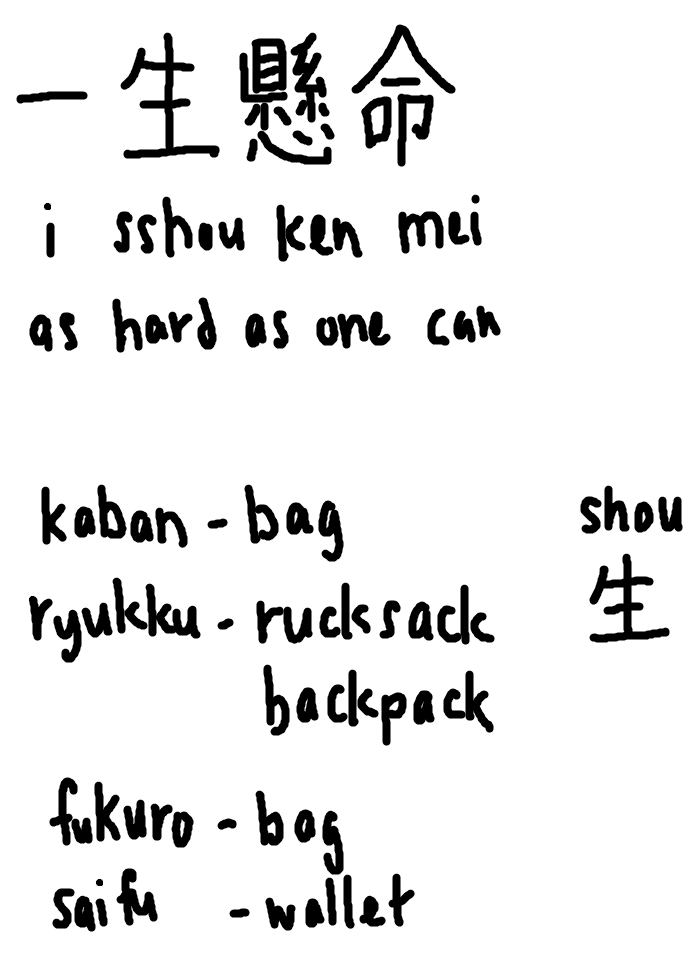 一生懸命
i sshou ken mei
as hard as one can
kaban - bag
shou
ryukku - rucksack
生
backpack
fukuro - bag
saifu - wallet